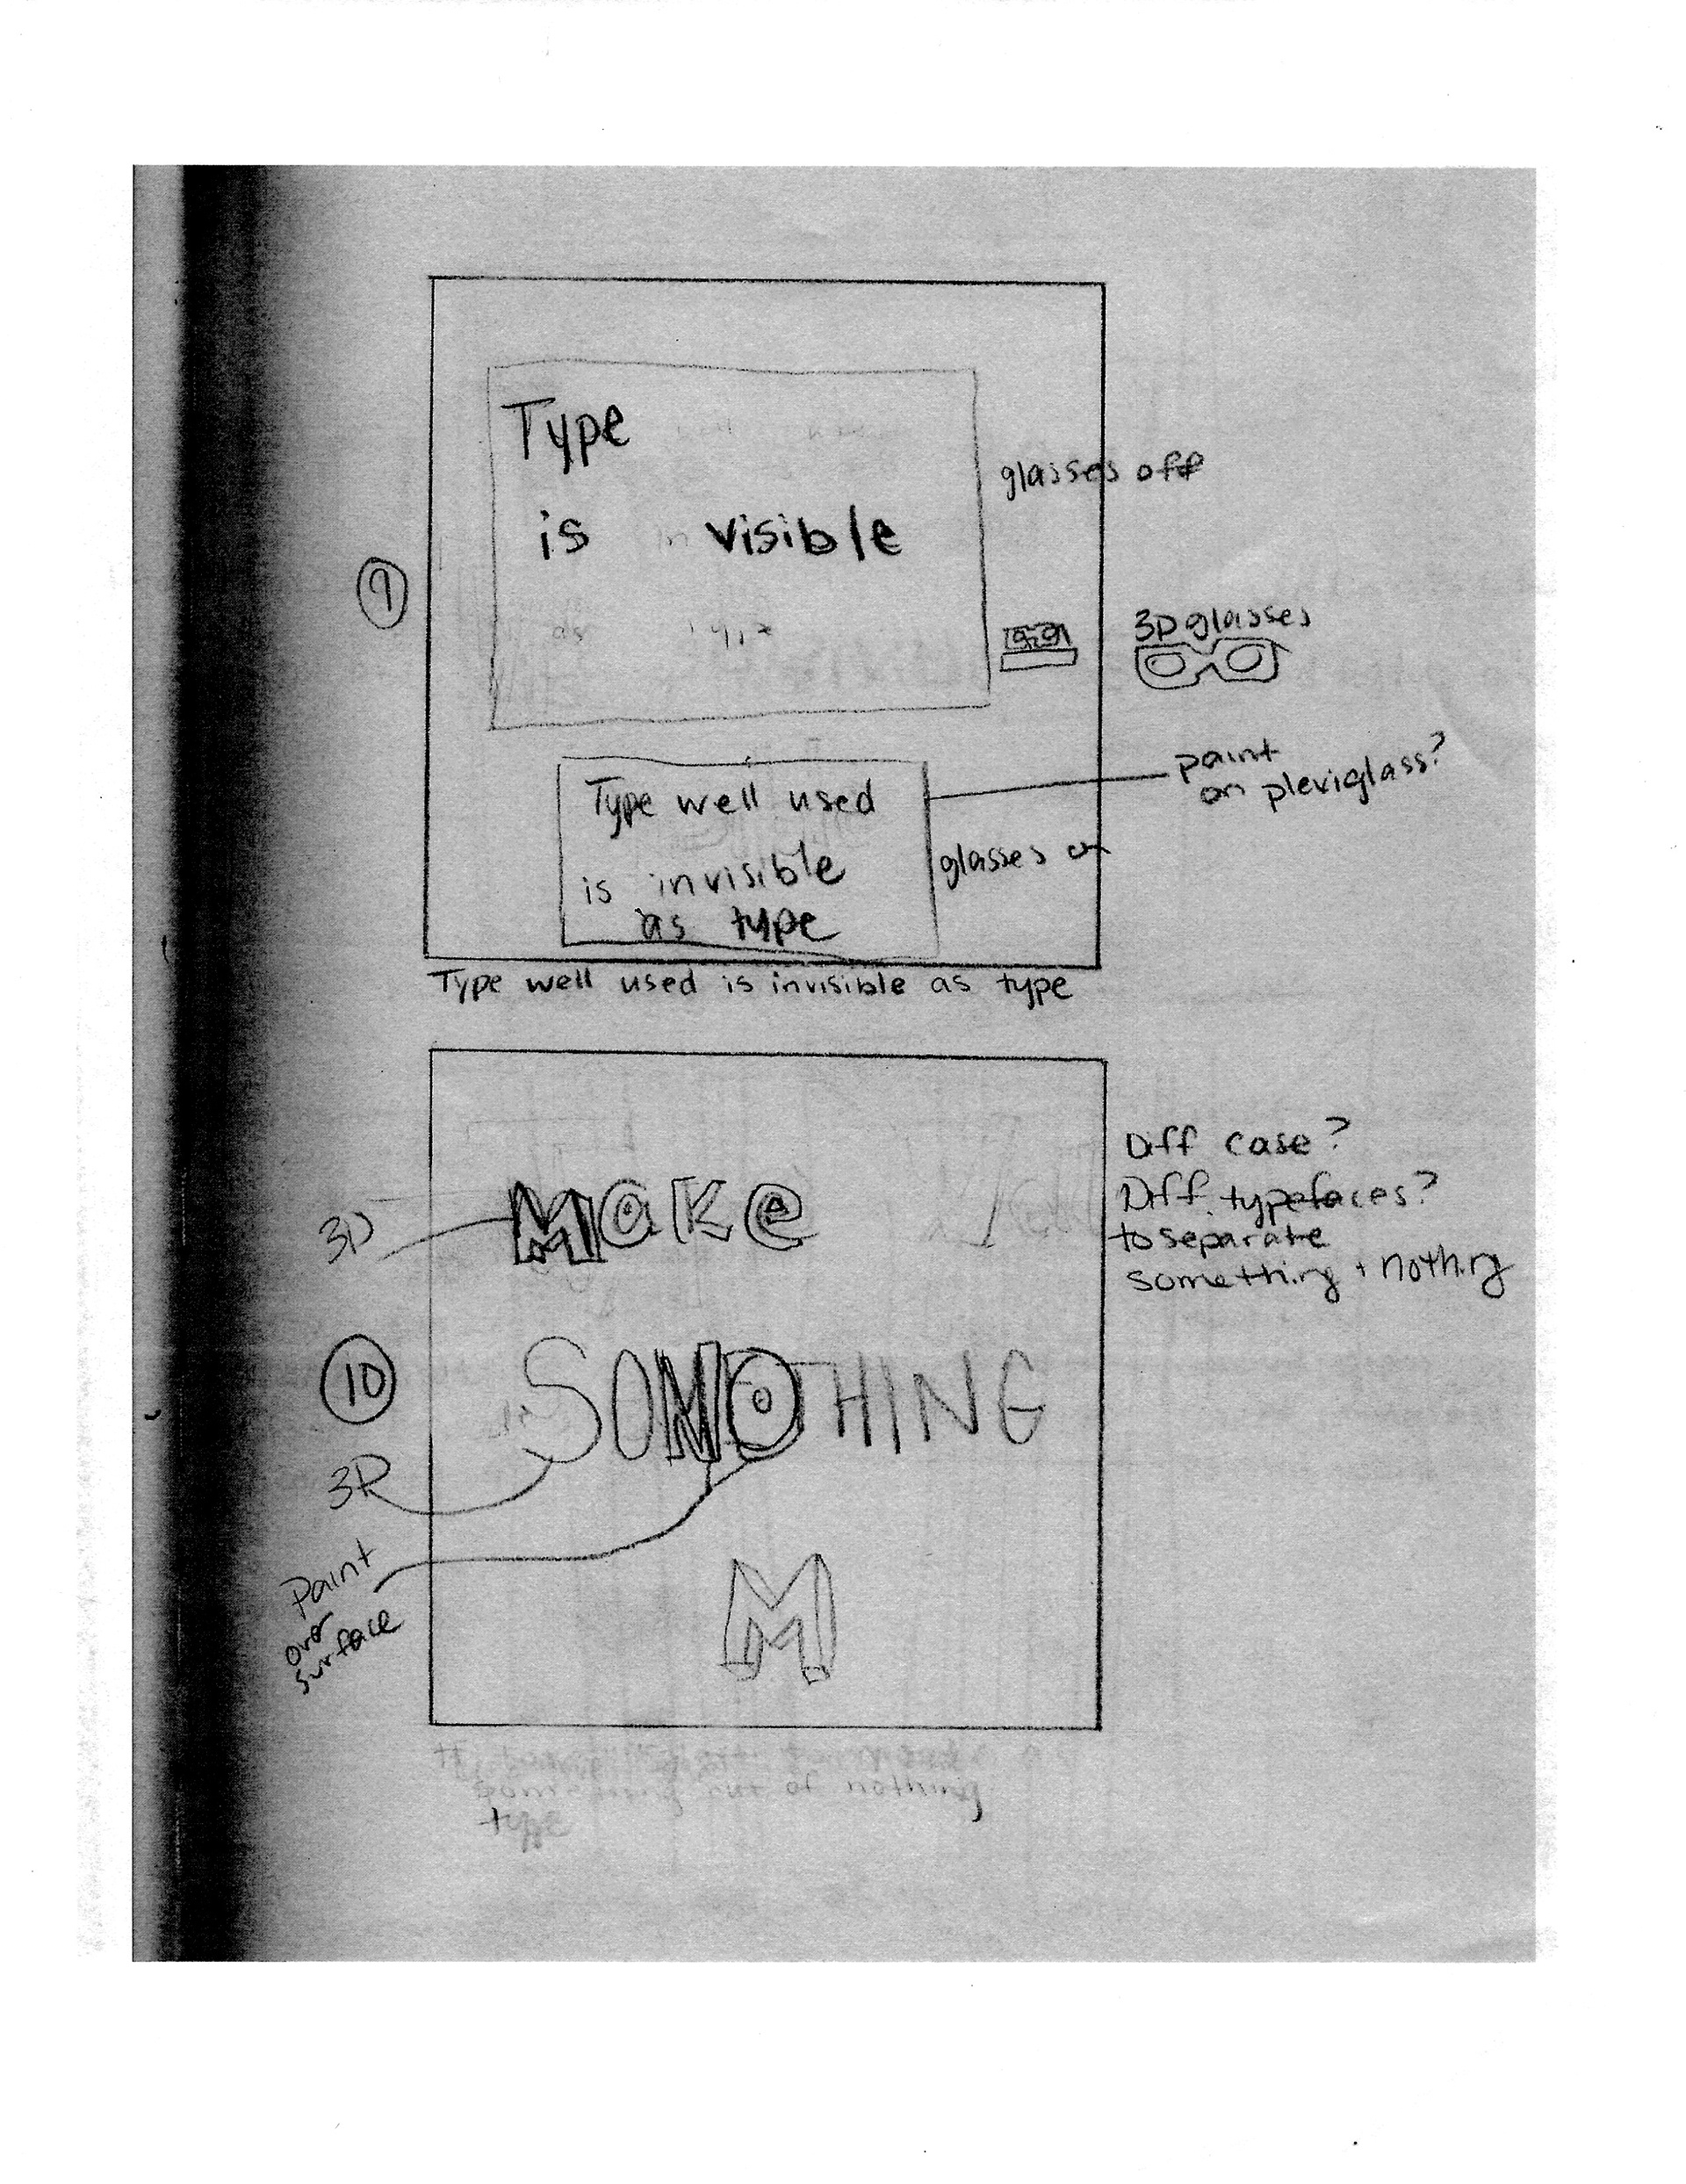 9
Type
is in visible
as type
glasses off
3D glasses
paint
on plexiglass?
Type well used
is invisible
as type
glasses on
Type well used is invisible as type
10
3D
Make
Diff case?
Diff. typefaces?
to separate
something + nothing
SOMNOTHING
3D
Paint
over
surface
M
something out of nothing
type